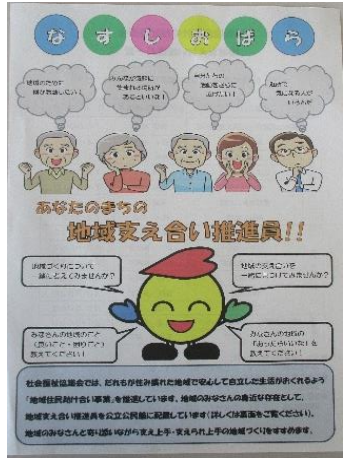 なすしおばら
地域のために
何かお話したい！
みんなが気軽に
集まれる場所が
あるといいな！
自分たちの
活動をさらに
広げたい！
地域で
気になる人が
いるんだ
あなたのまちの
地域支え合い推進員!!
地域づくりについて
一緒に考えてみませんか？
地域の支え合いを
一緒にしてみませんか？
みなさんの地域のこと
（良いこと・困りごと）
教えてください！
みなさんの地域の
「あったらいいな」を
教えてください！
社会福祉協議会では、だれもが住み慣れた地域で安心して自立した生活がおくれるよう
「地域住民助け合い事業」を推進しています。地域のみなさんの身近な存在として、
地域支え合い推進員を公立公民館に配置しています（詳しくは裏面をご覧ください）。
地域のみなさんと寄り添いながら支え上手・支えられ上手の地域づくりをすすめます。